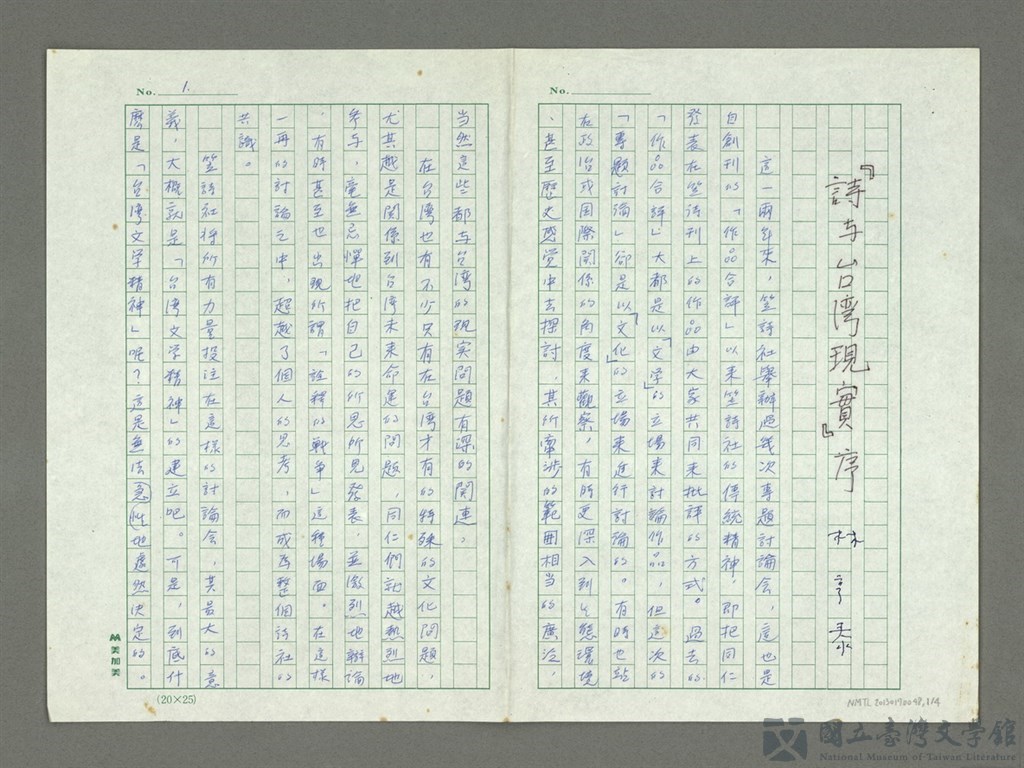 『詩与台湾現實』序
林亨泰
No.
這一兩年來，笠詩社舉辦過幾次專題討論会，這也是
自創刊以「作品合評」以來笠詩社的傳統精神，即把同仁
發表在笠詩刊上的作品由大家共同來批評的方式。過去的
「作品合評」大都是以「文学」的立場來討論作品，但這次的
「專題討論」卻是以「文化」的立場來進行討論的。有時也站
在政治或国際関係的角度來觀察，有時更深入到生態環境
、甚至歷史感覚中去探討，其所牽涉的範囲相当的廣泛，
No. 1.
当然這些都与台湾的現实問題有深的関連。
在台湾也有不少只有在台湾才有的特殊的文化問題，
尤其越是関係到台湾未來命運的問題，同仁們就越熱烈地
参与，毫無忌憚地把自己的所思所見發表，並激烈地辯論
，有時甚至也出現所謂「詮釋的戰争」這種場面。在這樣
一再的討論之中，超越了個人的思考，而成爲整個詩社的
共識。
笠詩社将所有力量投注在這樣的討論会，其最大的意
義，大概就是「台湾文学精神」的建立吧。可是，到底什
麽是「台湾文学精神」呢？這是無法急性地遽然决定的。
(20×25)
美加美
NMTL 20130190098, 1/4
國立臺灣文學館
National Museum of Taiwan Literature